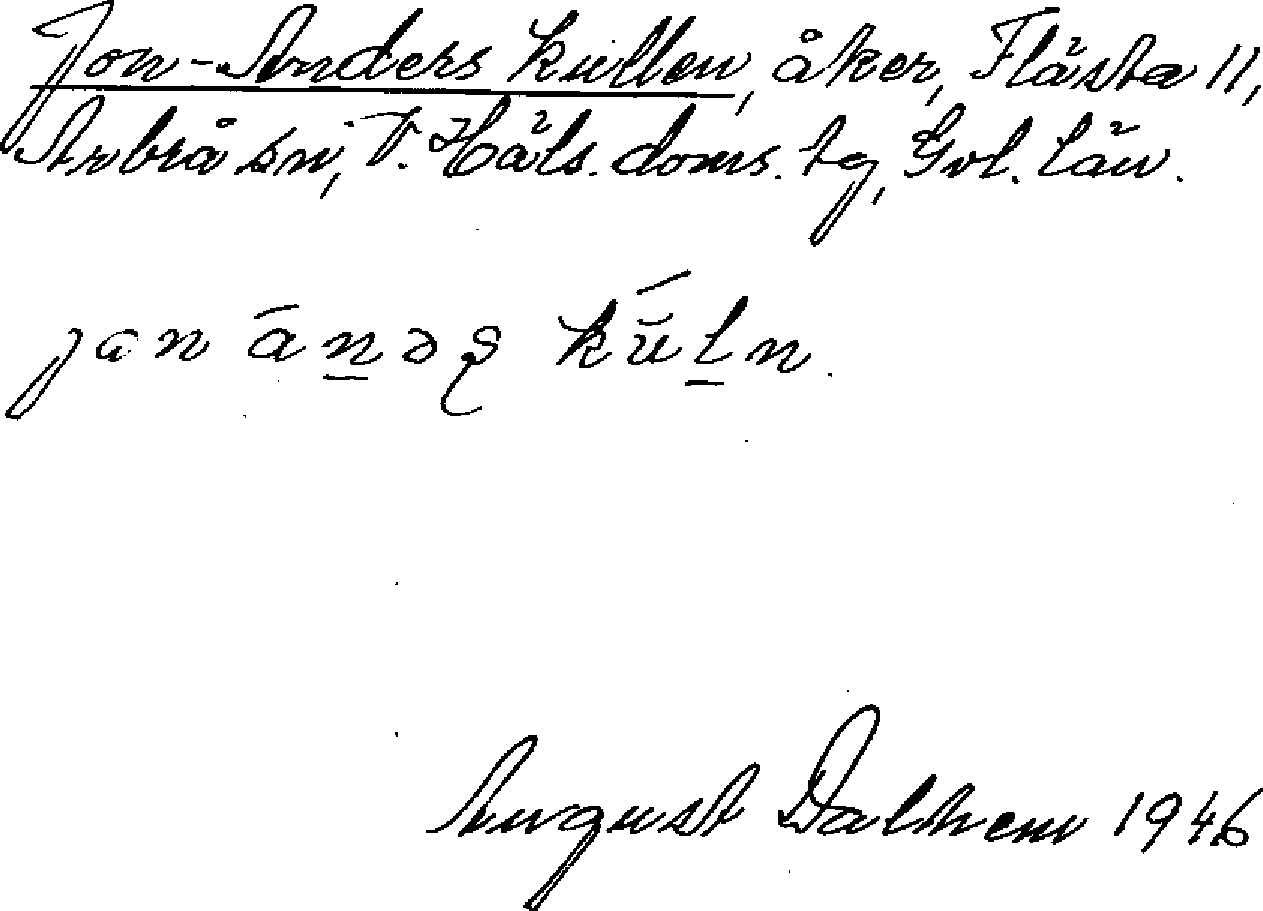 Jon-Anders kullen, åker, Flästa 11,
Arbrå sn, V. Häls. doms. tg, Gvl. län.
jɷn án̠əʂ kŭ́l̠n.
August Dalhem 1946